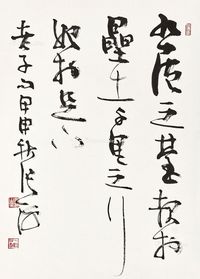 九層之基起於
壘土千里之行
始於足下
老子句甲申秋